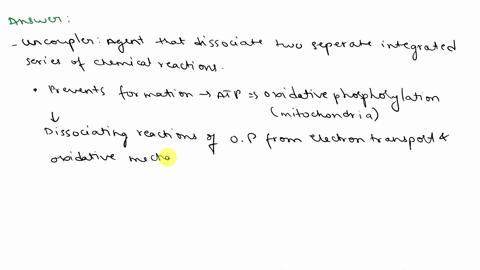 Answer:
- Uncoupler: Agent that dissociate two seperate integrated
series of chemical reactions.
• Prevents formation → ATP => oxidative phosphorylation
(mitochondria)
↓
Dissociating reactions of O.P from electron transport &
oxidative mecha